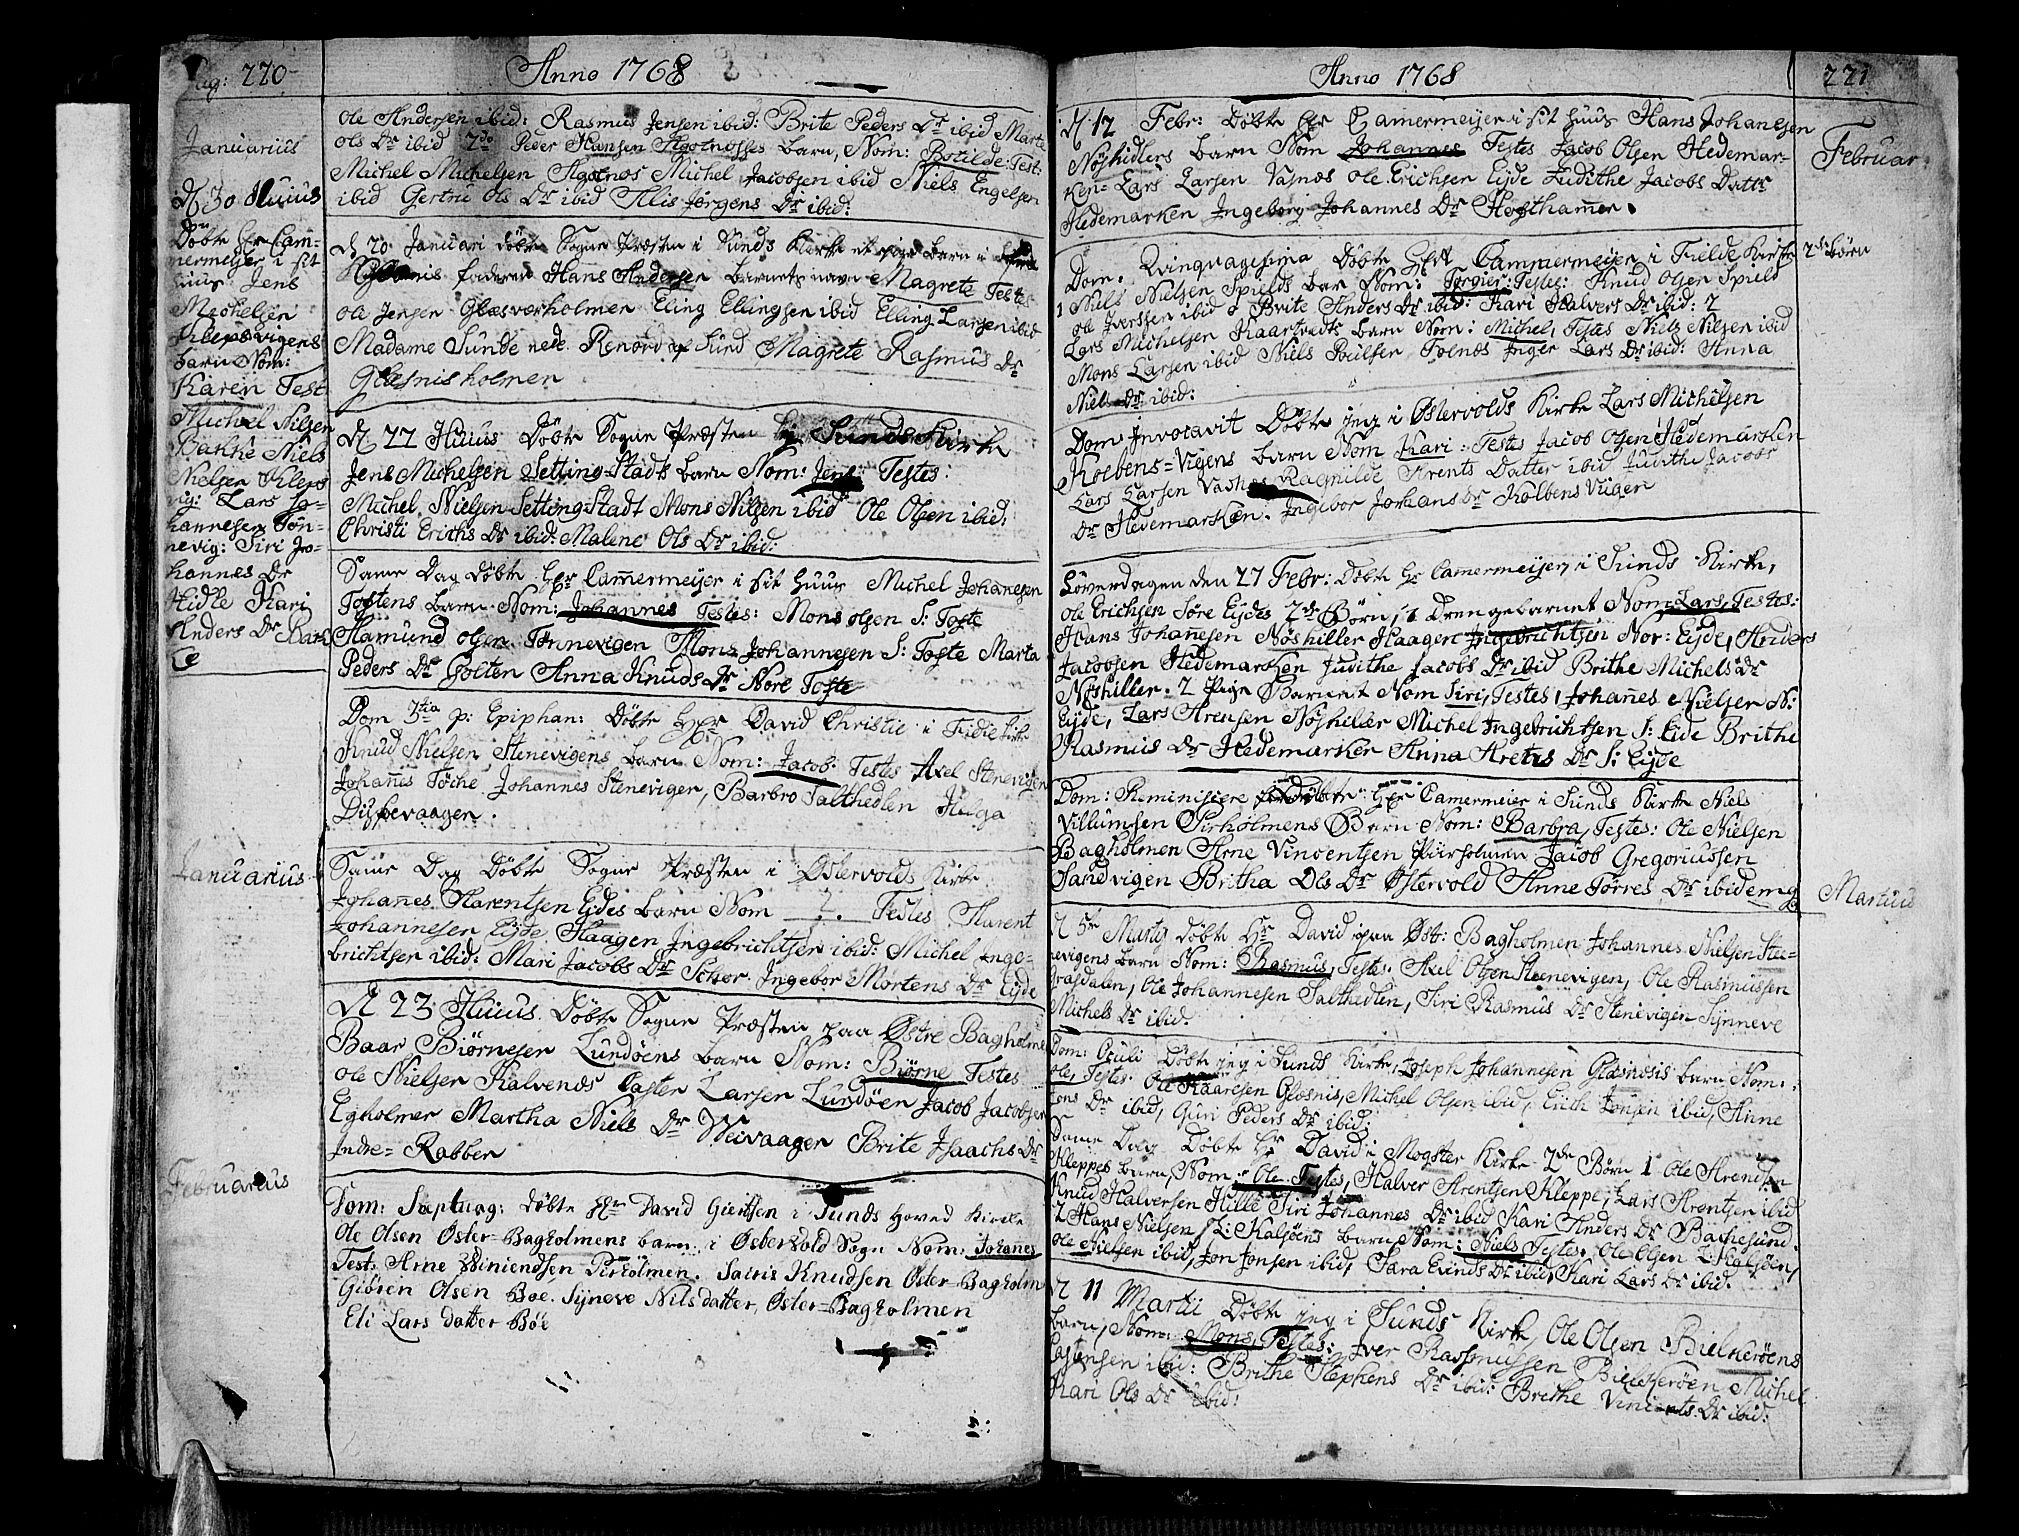 Pag: 220
Anno 1768
Januarius
D. 30 Huius
Döbte Hr Cam-
mermeijer i sit
huus Jens
Mechelsen
Klepsvigens
barn Nom:
Karen Test
Michael Nilsen
Bakke Niels
Nielsen Kleps
vig: Lars Jo-
hannesen Tön-
nevig: Siri Jo-
hannes Dr
Hidle Kari
Anders Dr Bak-
ke
Januarius
Februarius
Ole Andersen ibid: Rasmus Jensen ibid: Brite Peders Dr ibid Marte
Ols Dr ibid 2do Peder Hansen Agotnosses barn, Nom: Botilde: Test:
Michel Michelsen Agotnos Michel Jacobsen ibid Niels Engelsen
ibid Gertru Ols Dr ibid Alis Jörgens Dr ibid:
D. 20 Januari döbte Sogne Præsten i Sunds Kirke et barn
faderen Hans Andersen barnets navn Magrete Testes
Ole Jensen Glæsværholmen Eling Ellingsen ibid Elling Larsen ibid
Madame Sunde nede Renord af Sund Magrete Rasmus Dr
Glesnisholmen
D. 22 Huius Döbte Sogne Præsten Sunds Kirke
Jens Michelsen Setting-Stads barn Nom: Jens Testes:
Michel Nielsen Setting-Stadt Mons Nilsen ibid Ole Olsen ibid:
Christi Erichs Dr ibid: Malene Ols Dr ibid:
Same Dag Döbte Hr Camermeijer i sit huus Michel Johanesen
Toftens barn Nom: Johannes Testes: Mons olsen S: Tofte
Hamund olsen Tönnevigen Mons Johannesen S: Tofte Marta
Peders Dr Golten Anna Knuds Dr Nore Tofte
Dom 3tia p: Epiphan: Döbte Hr David Christie i Fielde Kirke
Knud Nielsen Stenevigens barn Nom: Jacob Testes Axel Stenevigen
Johanes Töche Johannes Steneviger, Barbro Salthedlen Helga
Dispevaagen.
Same Dag Döbte Sogne Præsten i Östervolds Kirke
Johanes Harentsen Eides barn Nom ? Testes Harent
Johannesen Eijde Haagen Ingebrichtsen ibid: Michel Inge-
brichtser ibid: Mari Jacobs Dr Ingebor Mortens Dr Eijde
D. 23 Huius Döbte Sogne Præsten paa Östre Bagholme
Baar Biörnesen Lundöens barn Nom: Biörne Testes
Ole Nielsen Kalvenes Casten Larsen Lundöen Jacob Jacobsen
Egholmer Martha Niels Dr Weivaagen Brite Isaachs Dr
Indre-Rabben
Dom: Septuag: döbte Hr David Giertsen i Sunds Hoved Kirke
Ole Olsen Öster-Bagholmens barn i Östervold Sogn Nom: Johanes
Test: Arne Viniendsen Pirholmen. Sairis Knudsen Öster-Bagholm
Giören Olsen Böe. Syneve Nils datter, Öster-Bagholmen
Eli Lars datter Böe
Anno 1768
221
Februar
Martius
D. 12 Febr: Döbte Hr Camermeijer i sit huus Hans Johanesen
Nöshidlers barn Nom Johannes Testes Jacob Olsen Hedemar-
ken- Lars Larsen Vasnes Ole Erichsen Eijde Judithe Jacobs Dattr
Hedemarken Ingeborg Johannes Dr Hosthamer.
Dom: Qvinquagesima Döbte Hr Cammermeijer i Fielde Kirke 2de Börn
1 Niels Nielsen Spields bar Nom: Torgier: Testes: Knud Olsen Spield
Ole Iverssen ibid Brite Anders Dr ibid: Kari Halvers Dr ibid: 2
Lars Michelsen Kaartvedts barn Nom: Michel Testes Niels Nilsen ibid
Mons Larsen ibid Niels Poulsen Toenæs Inger Lars Dr ibid: Anna
Niels Dr ibid:
Dom Invocavit Döbte jeg i Östervolds Kirke Lars Michelsen
Koebens-Vigens barn Nom Kari: Testes Jacob Olsen Hedemarken
Lars Larsen Vasnes Ragnilde Arents Datter ibid Judithe Jacobs
Dr Hedemarken. Ingebor Johans Dr Kolbens Viigen
Löverdagen den 27 Febr: Döbte Hr Camermeijer, i Sunds Kirke,
Ole Erichsen Söre Eijdes 2de Börn, 1 Drengebarnet Nom: Lars, Testes:
Hans Johanesen Nöshiller Haagen Ingebrichtsen Nor: Eijde, Anders
Jacobsen Hedemarken Judithe Jacobs Dr ibid Brithe Michels Dr
Nöshiller. 2 Pige Barnet Nom Siri, Testes, Johanes Nielsen N:
Eijde, Lars Arensen Nöshiller Michel Ingebrichtsen S: Eide Brithe
Rasmus Dr Hedemarker Anna Aretes Dr S: Eijde
Dom: Reminiscere Döbte Hr Camermeier i Sunds Kirke Niels
Villumsen Pirholmens Barn Nom: Barbra, Testes: Ole Nielsen
Bagholmen Arne Vincentsen Piirholmen Jacob Gregoriussen
Sandvigen Britha Ols Dr Östervold Anne Törres Dr ibidem
D 5te Martij döbte Hr David paa Öst: Bagholmen Johannes Nielsen Ste-
nevigens barn Nom: Rasmus, Testes: Axel Olsen Steenevigen, Ole Rasmussen
Grasdalen, Ole Johannesen Salthedlen, Siri Rasmus Dr Stenevigen Synneve
Michels Dr ibid.
Dom: Oculi Döbte jeg i Sunds Kirke, Joseph Johannesen Glosnosis barn Nom:
Ole, Testes: Ole Kaaresen Glosnis, Michel Olsen ibid, Erich Jonsen ibid, Anne
Jons Dr ibid, Guri Peders Dr ibid:
Same Dag Döbte Hr David i Mogster Kirke 2de Börn 1 Ole Arendsen
Kleppes barn, Nom: Ole Testes, Halver Arentsen Kleppe, Lars Arentsen ibid
Knud Halversen Hille Siri Johannes Dr ibid Kari Anders Dr Backesund.
2 Hans Nielsen L: Kalsöens barn Nom: Niels Testes. Ole Olsen L: Kalsöen,
Ole Nielsen ibid, Jon Jonsen ibid, Sara Evinds Dr ibid, Kari Lars Dr ibid.
D 11 Martii Döbte jeg i Sunds Kirke Ole Olsen Bielkeröens
barn, Nom: Mons, Testes: Iver Rasmussen Bielckeröen Michel
Castensen ibid: Brithe Stephens Dr ibid: Brithe Vincents Dr ibid:
Kari Ols Dr ibid: